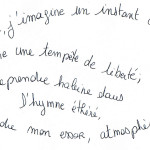 , j'imagine un instant
une tempête de liberté,
reprendre haleine dans
D'hymne éthéré,
mon essor, atmosphè